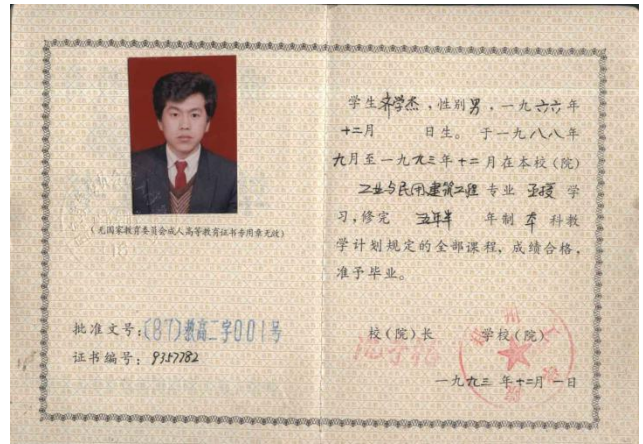 (无国家教育委员会成人高等教育证书专用章无效)
批准文号:(87)教高二字001号
证书编号:9357782
学生齐学杰,性别男,一九六六年
十二月 日生。于一九八八年
九月至一九九三年十二月在本校(院)
工业与民用建筑工程专业 函授 学
习,修完 五年半 年制 本 科教
学计划规定的全部课程,成绩合格,
准予毕业。
校(院)长 学校(院)
一九九三 年十二月 一日